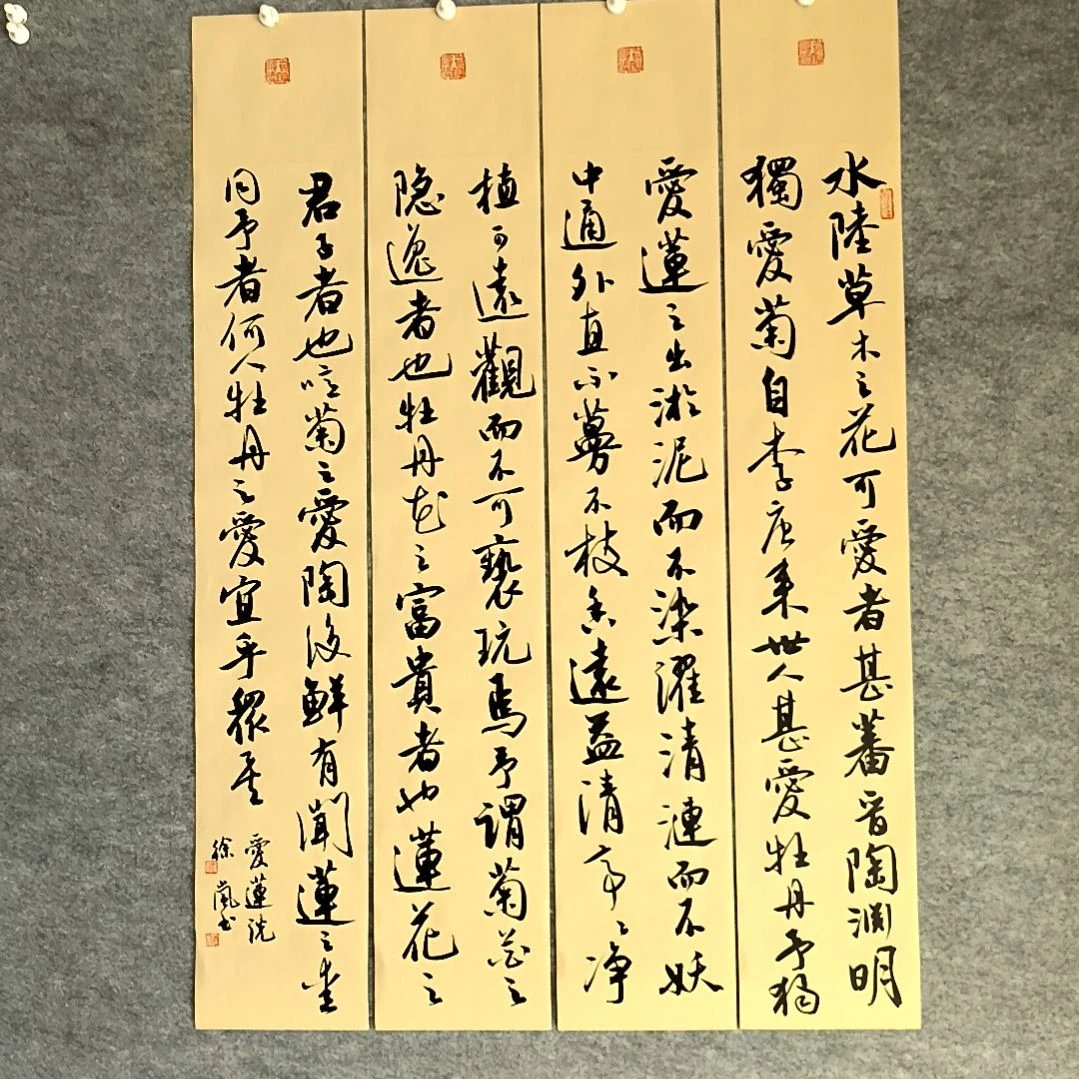 水陸草木之花可愛者甚蕃晋陶渊明
獨愛菊自李唐来世人甚愛牡丹予獨
愛蓮之出淤泥而不染濯清漣而不妖
中通外直不蔓不枝香遠益清亭〻净
植可遠觀而不可褻玩焉予謂菊花之
隐逸者也牡丹花之富貴者也蓮花之
君子者也噫菊之愛陶後鮮有聞蓮之愛
同予者何人牡丹之愛宜乎眾矣
愛蓮说
徐嵐书